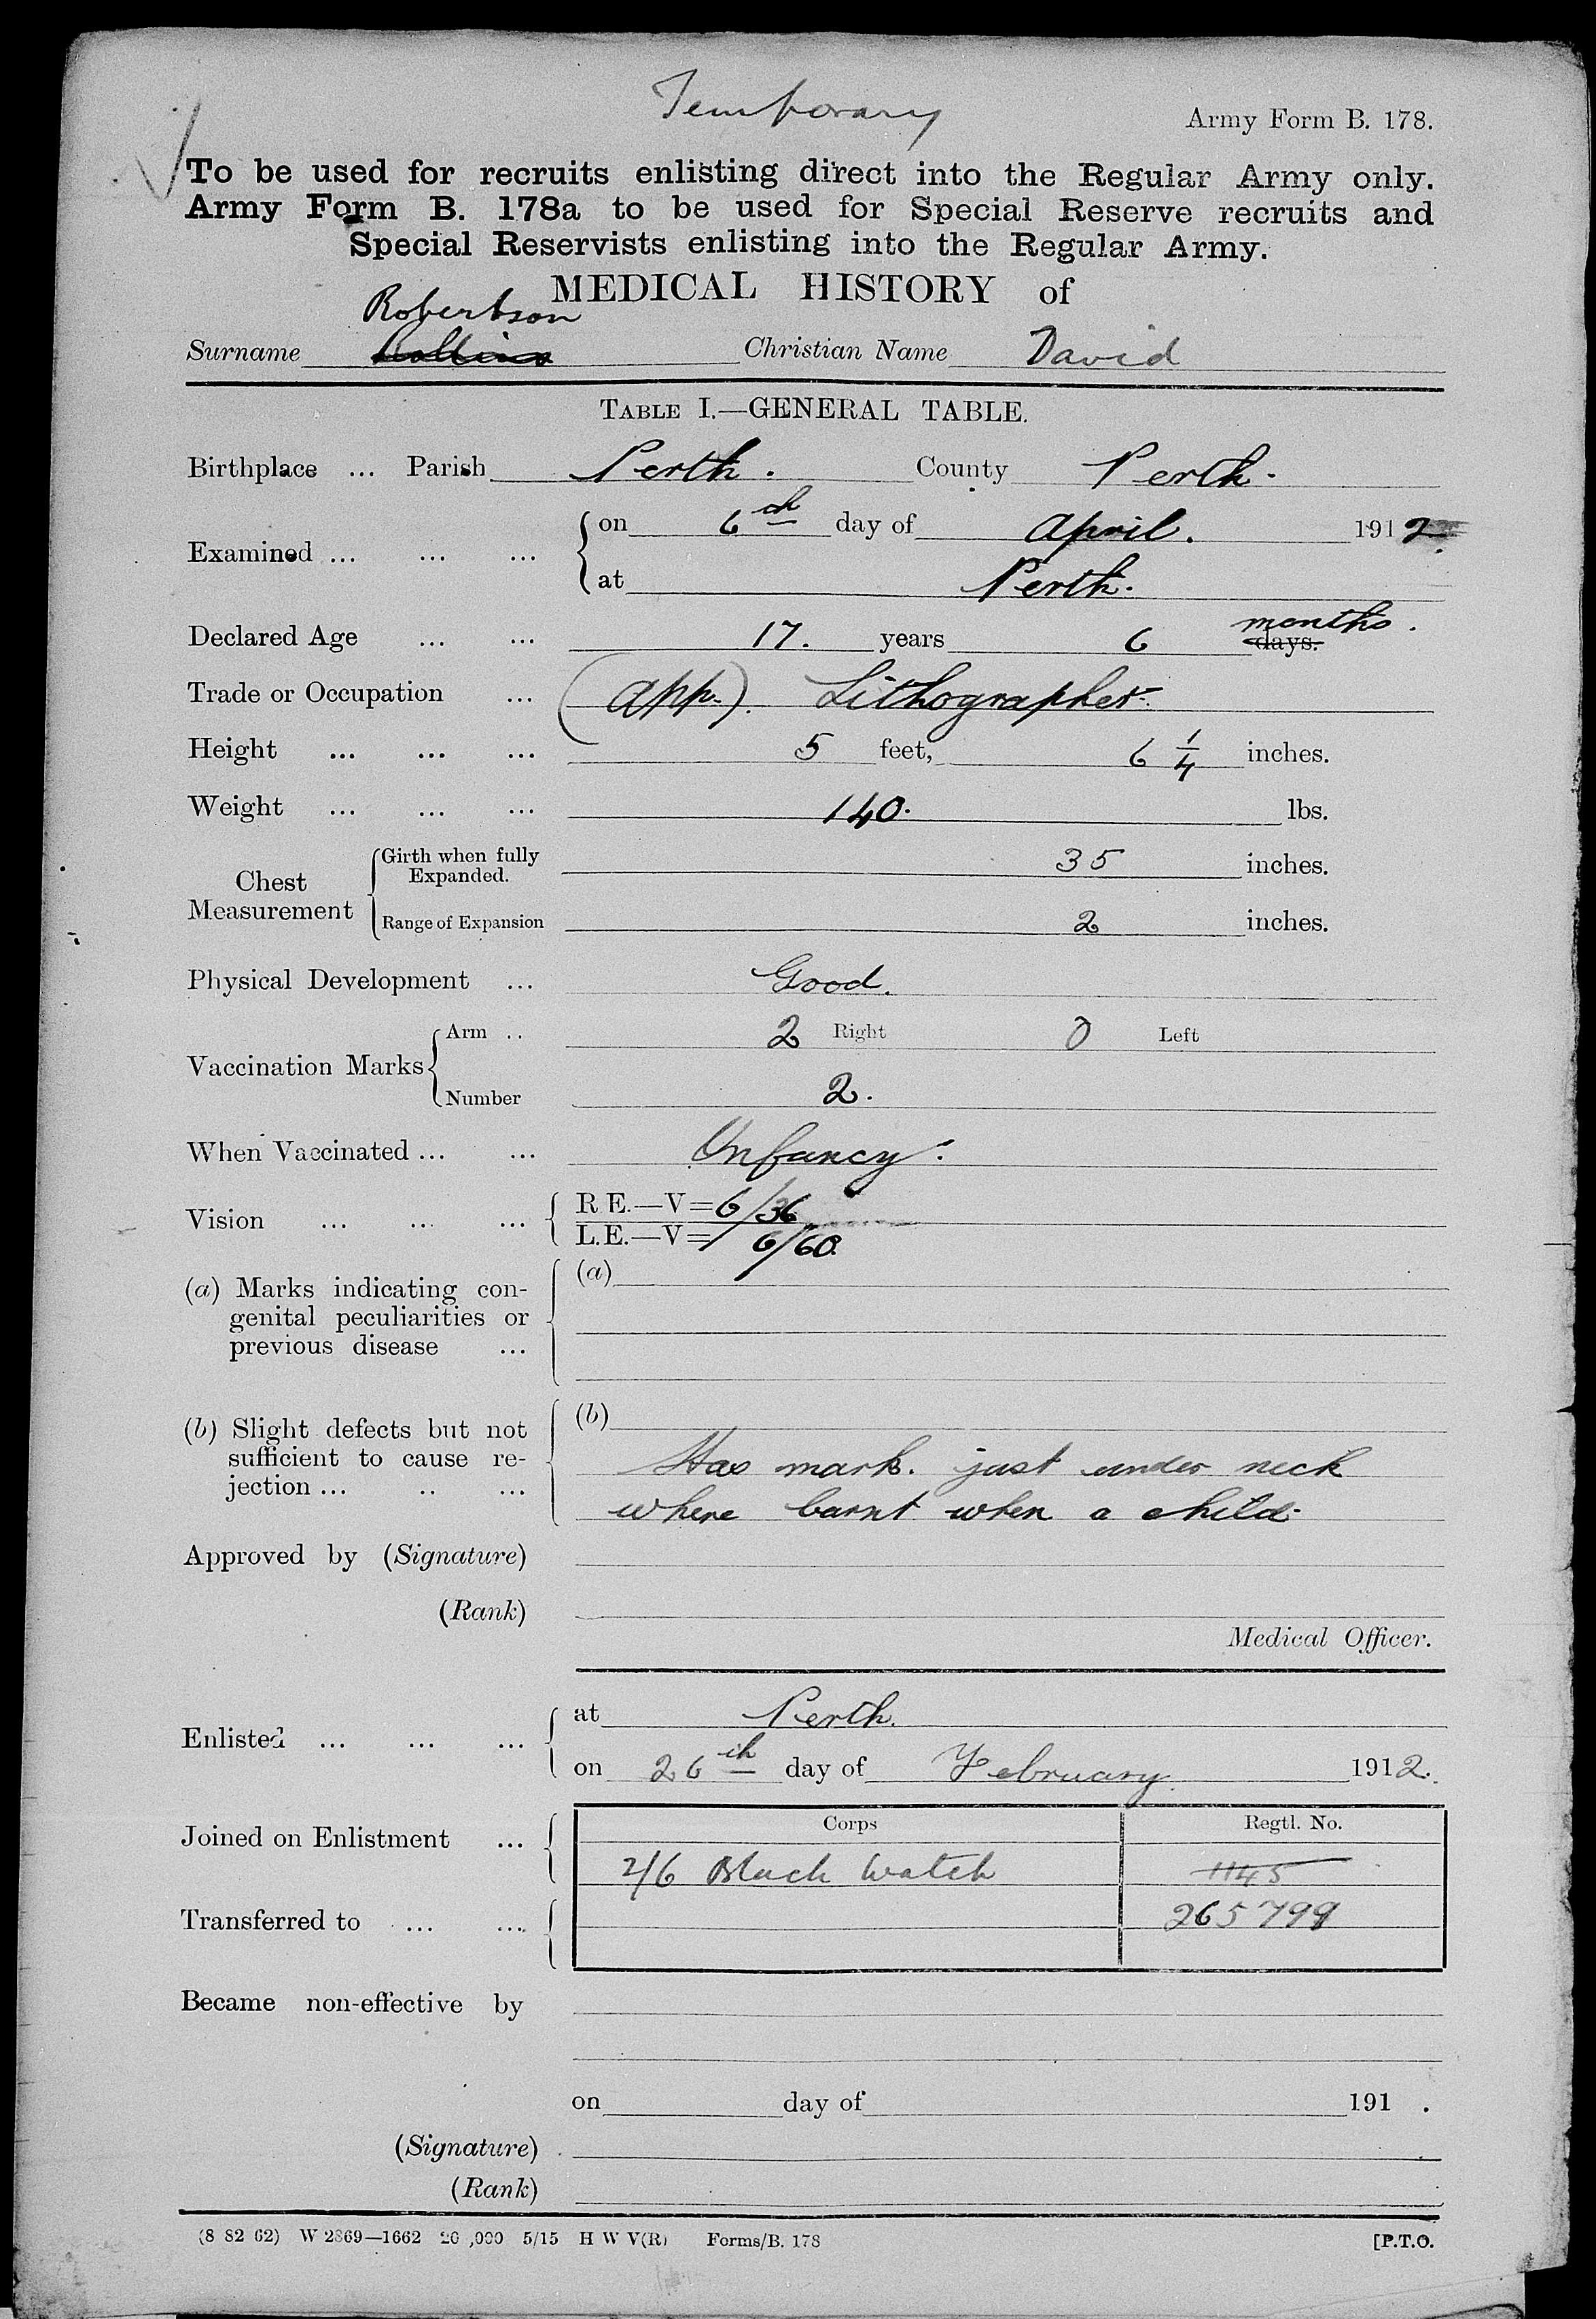 Temporary
Army Form B. 178.
To be used for recruits enlisting direct into the Regular Army only.
Army Form B. 178a to be used for Special Reserve recruits and
Special Reservists enlisting into the Regular Army.
MEDICAL HISTORY of
Robertson
Surname Collins Christian Name David
TABLE I.—GENERAL TABLE.
Birthplace ... Parish Perth. County Perth.
Examined ... ... ... on 6th day of April. 1912.
at Perth.
Declared Age ... ... 17. years 6 months. days.
Trade or Occupation ... (App.). Lithographer.
Height ... ... ... 5 feet, 6 1/4 inches.
Weight ... ... ... 140. lbs.
Chest Measurement Girth when fully Expanded. 35 inches.
Range of Expansion 2 inches.
Physical Development ... Good.
Vaccination Marks Arm .. 2 Right 0 Left
Number 2.
When Vaccinated ... ... Infancy.
Vision ... ... ... R.E.—V= 6/36
L.E.—V= 6/60.
(a) Marks indicating con- (a)
genital peculiarities or
previous disease ...
(b) Slight defects but not (b)
sufficient to cause re- Has mark. just under neck
jection ... .. ... where burnt when a child.
Approved by (Signature)
(Rank)
Medical Officer.
Enlisted ... ... ... at Perth.
on 26th day of February. 1912.
Corps Regtl. No.
Joined on Enlistment ... 2/6 Black Watch 1145
Transferred to ... ... 265799
Became non-effective by
on day of 191 .
(Signature)
(Rank)
(8 82 62) W 2869—1662 20 ,000 5/15 H W V(R) Forms/B. 178 [P.T.O.